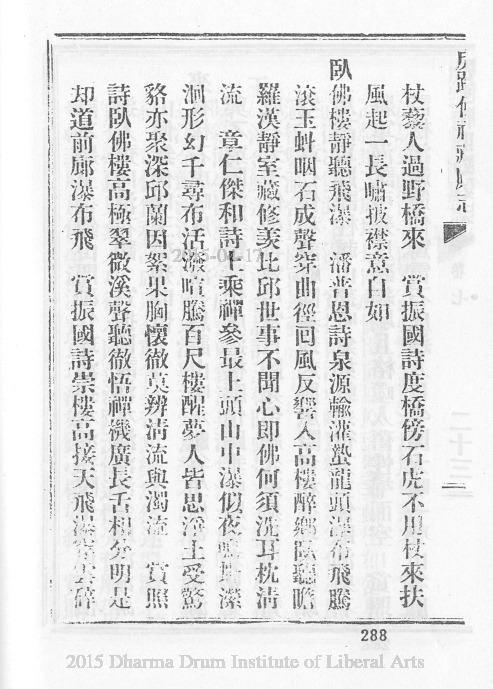 杖藜人過野橋來　賞振國詩度橋傍石虎不用杖來扶
風起一長嘯披襟意自如
臥佛樓靜聽飛瀑　潘普恩詩泉源輸灌蟄龍頭瀑布飛騰
滾玉虬咽石成聲穿曲徑回風反響入高樓醉鄉臥聽瞻
羅漢靜室藏修羡比邱世事不聞心即佛何須洗耳枕清
流　章仁傑和詩上乘禪參最上頭山中瀑似夜潔
洄形幻千尋布活潑喧騰百尺樓醒夢人皆思淨土受驚
貉亦聚深邱蘭因絮果胸懷徹莫辨清流與濁流　賞照
詩臥佛樓高極翠微溪聲聽徹悟禪機廣長舌相分明是
却道前廊瀑布飛　賞振國詩崇樓高接天飛瀑雲碎
二十三
288
2015 Dharma Drum Institute of Liberal Arts